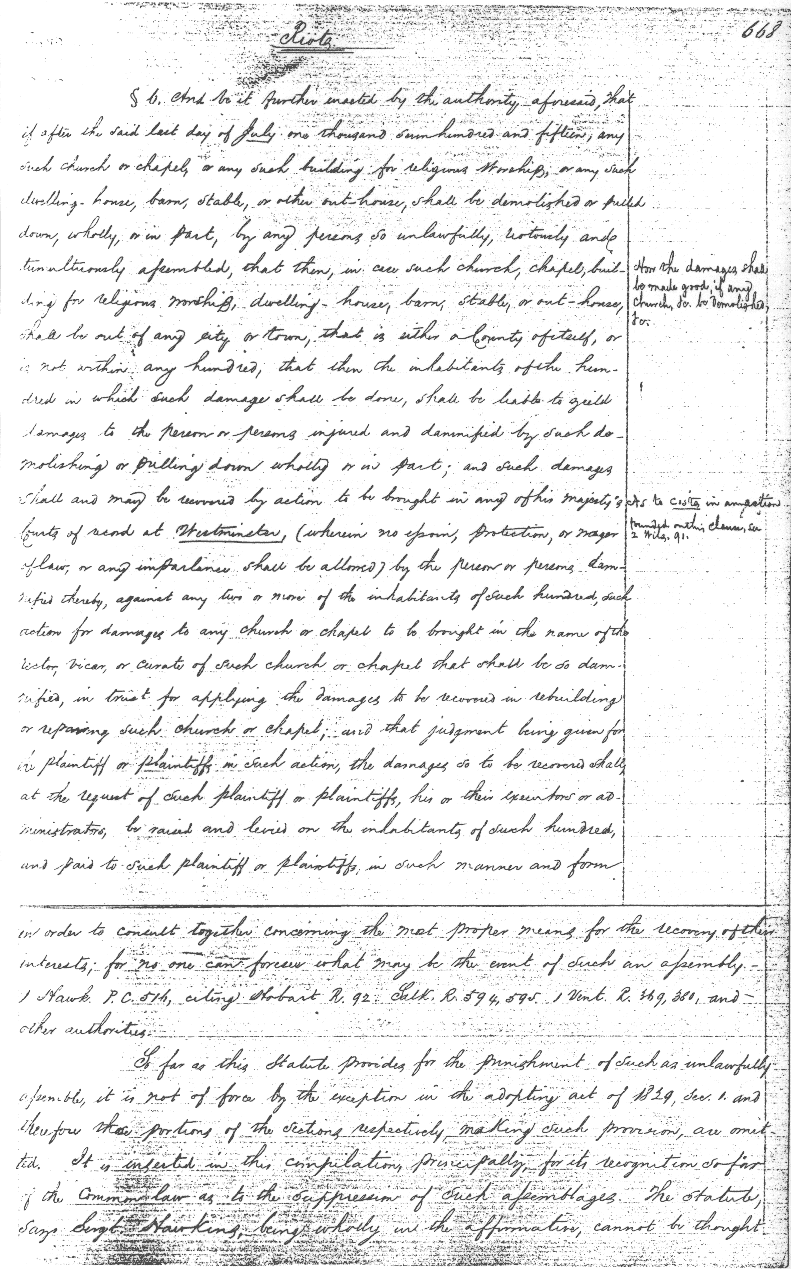 668
Riots
§ 6. And be it further enacted by the authority aforesaid, that
if after the said last day of July one thousand seven hundred and fifteen, any
such church or chapel, or any such building for religious worship, or any such
dwelling-house, barn, stable, or other out-house, shall be demolished or pulled
down, wholly, or in part, by any persons so unlawfully, riotously and
tumultuously assembled, that then, in case such church, chapel, buil-
ding for religious worship, dwelling-house, barn, stable, or out-house,
shall be out of any city or town, that is either a County of itself, or
is not within any hundred, that then the inhabitants of the hun-
dred in which such damage shall be done, shall be liable to yield
damages to the person or persons injured and damnified by such de-
molishing or pulling down wholly or in part; and such damages
shall and may be recovered by action to be brought in any of his majesty's
Courts of record at Westminster, (wherein no essoin, protection, or wager
of law, or any imparlance shall be allowed) by the person or persons dam-
nified thereby, against any two or more of the inhabitants of such hundred, such
action for damages to any church or chapel to be brought in the name of the
rector, vicar, or curate of such church or chapel that shall be so dam-
nified, in trust for applying the damages to be recovered in rebuilding
or repairing such church or chapel; and that judgment being given for
the plaintiff or plaintiffs in such action, the damages so to be recovered shall,
at the request of such plaintiff or plaintiffs, his or their executors or ad-
ministrators, be raised and levied on the inhabitants of such hundred,
and paid to such plaintiff or plaintiffs, in such manner and form
How the damages shall
be made good, if any
Church, &c. be demolished,
&c.
As to costs in an action
founded on this clause, see
2 Wils. 91.
in order to consult together concerning the most proper means for the recovery of their
interests; for no one can foresee what may be the event of such an assembly.
1 Hawk. P.C. 516, citing Hobart R. 92. Salk. R. 594, 595. 1 Vent. R. 369, 380, and
other authorities.
So far as this Statute provides for the punishment of such as unlawfully
assemble, it is not of force by the exception in the adopting act of 1829, Sec. 1. and
therefore those portions of the sections respectively making such provision, are omit-
ted. It is inserted in this compilation, principally, for its recognition so far
of the Common law as to the suppression of such assemblages. The Statute,
says Sergt. Hawkins, being wholly in the affirmative, cannot be thought